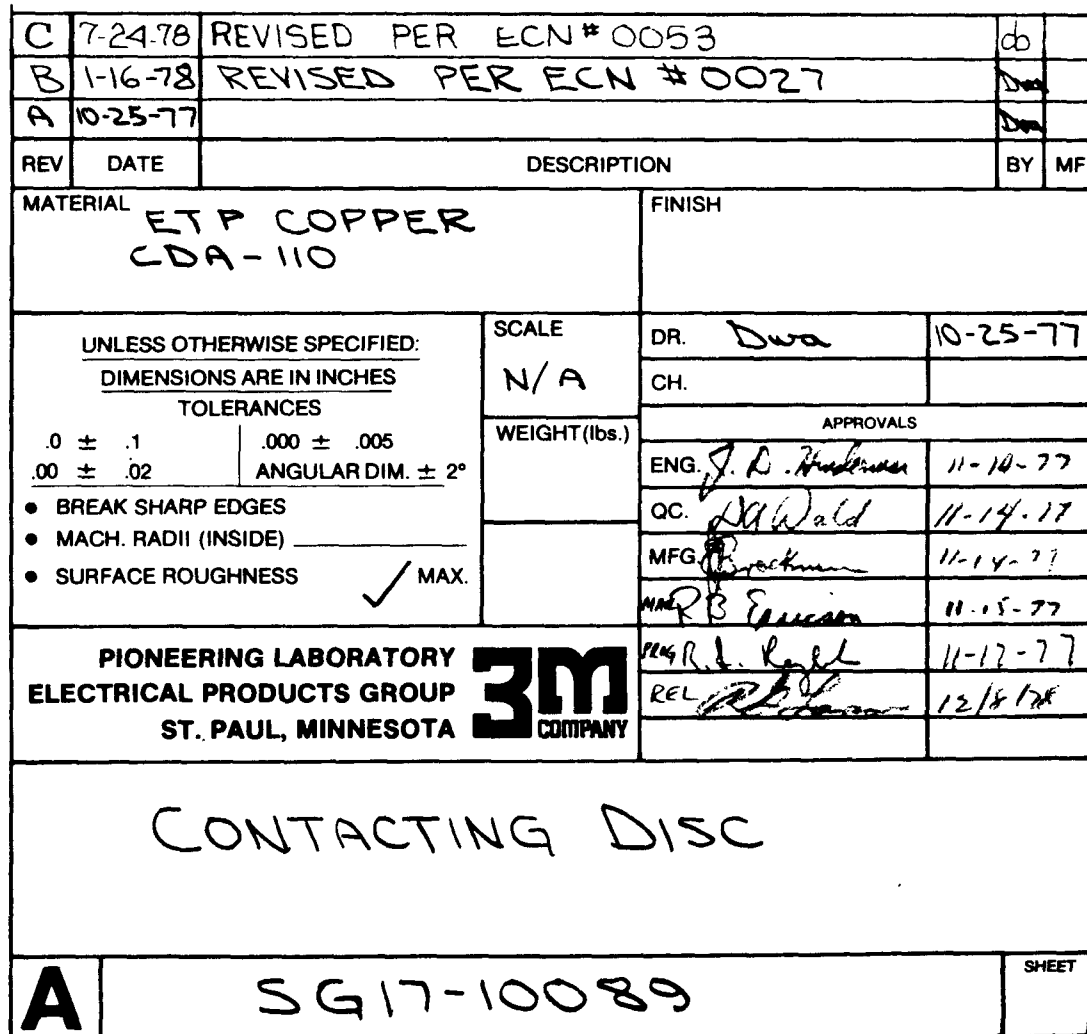 C 7-24-78 REVISED PER ECN# 0053 db
B 1-16-78 REVISED PER ECN #0027 Dwa
A 10-25-77 Dwa
REV DATE DESCRIPTION BY MF
MATERIAL ETP COPPER
CDA-110
FINISH
UNLESS OTHERWISE SPECIFIED:
DIMENSIONS ARE IN INCHES
TOLERANCES
.0 ± .1 .000 ± .005
.00 ± .02 ANGULAR DIM. ± 2°
• BREAK SHARP EDGES
• MACH. RADII (INSIDE)
• SURFACE ROUGHNESS √ MAX.
SCALE
N/A
WEIGHT(lbs.)
DR. Dwa 10-25-77
CH.
APPROVALS
ENG. J. D. 11-10-77
QC. DA Wald 11-14-77
MFG. Brockman 11-14-77
R B Ericson 11-15-77
R. L. 11-17-77
REL 12/8/78
PIONEERING LABORATORY
ELECTRICAL PRODUCTS GROUP
ST. PAUL, MINNESOTA
3M
COMPANY
CONTACTING DISC
A SG17-10089 SHEET